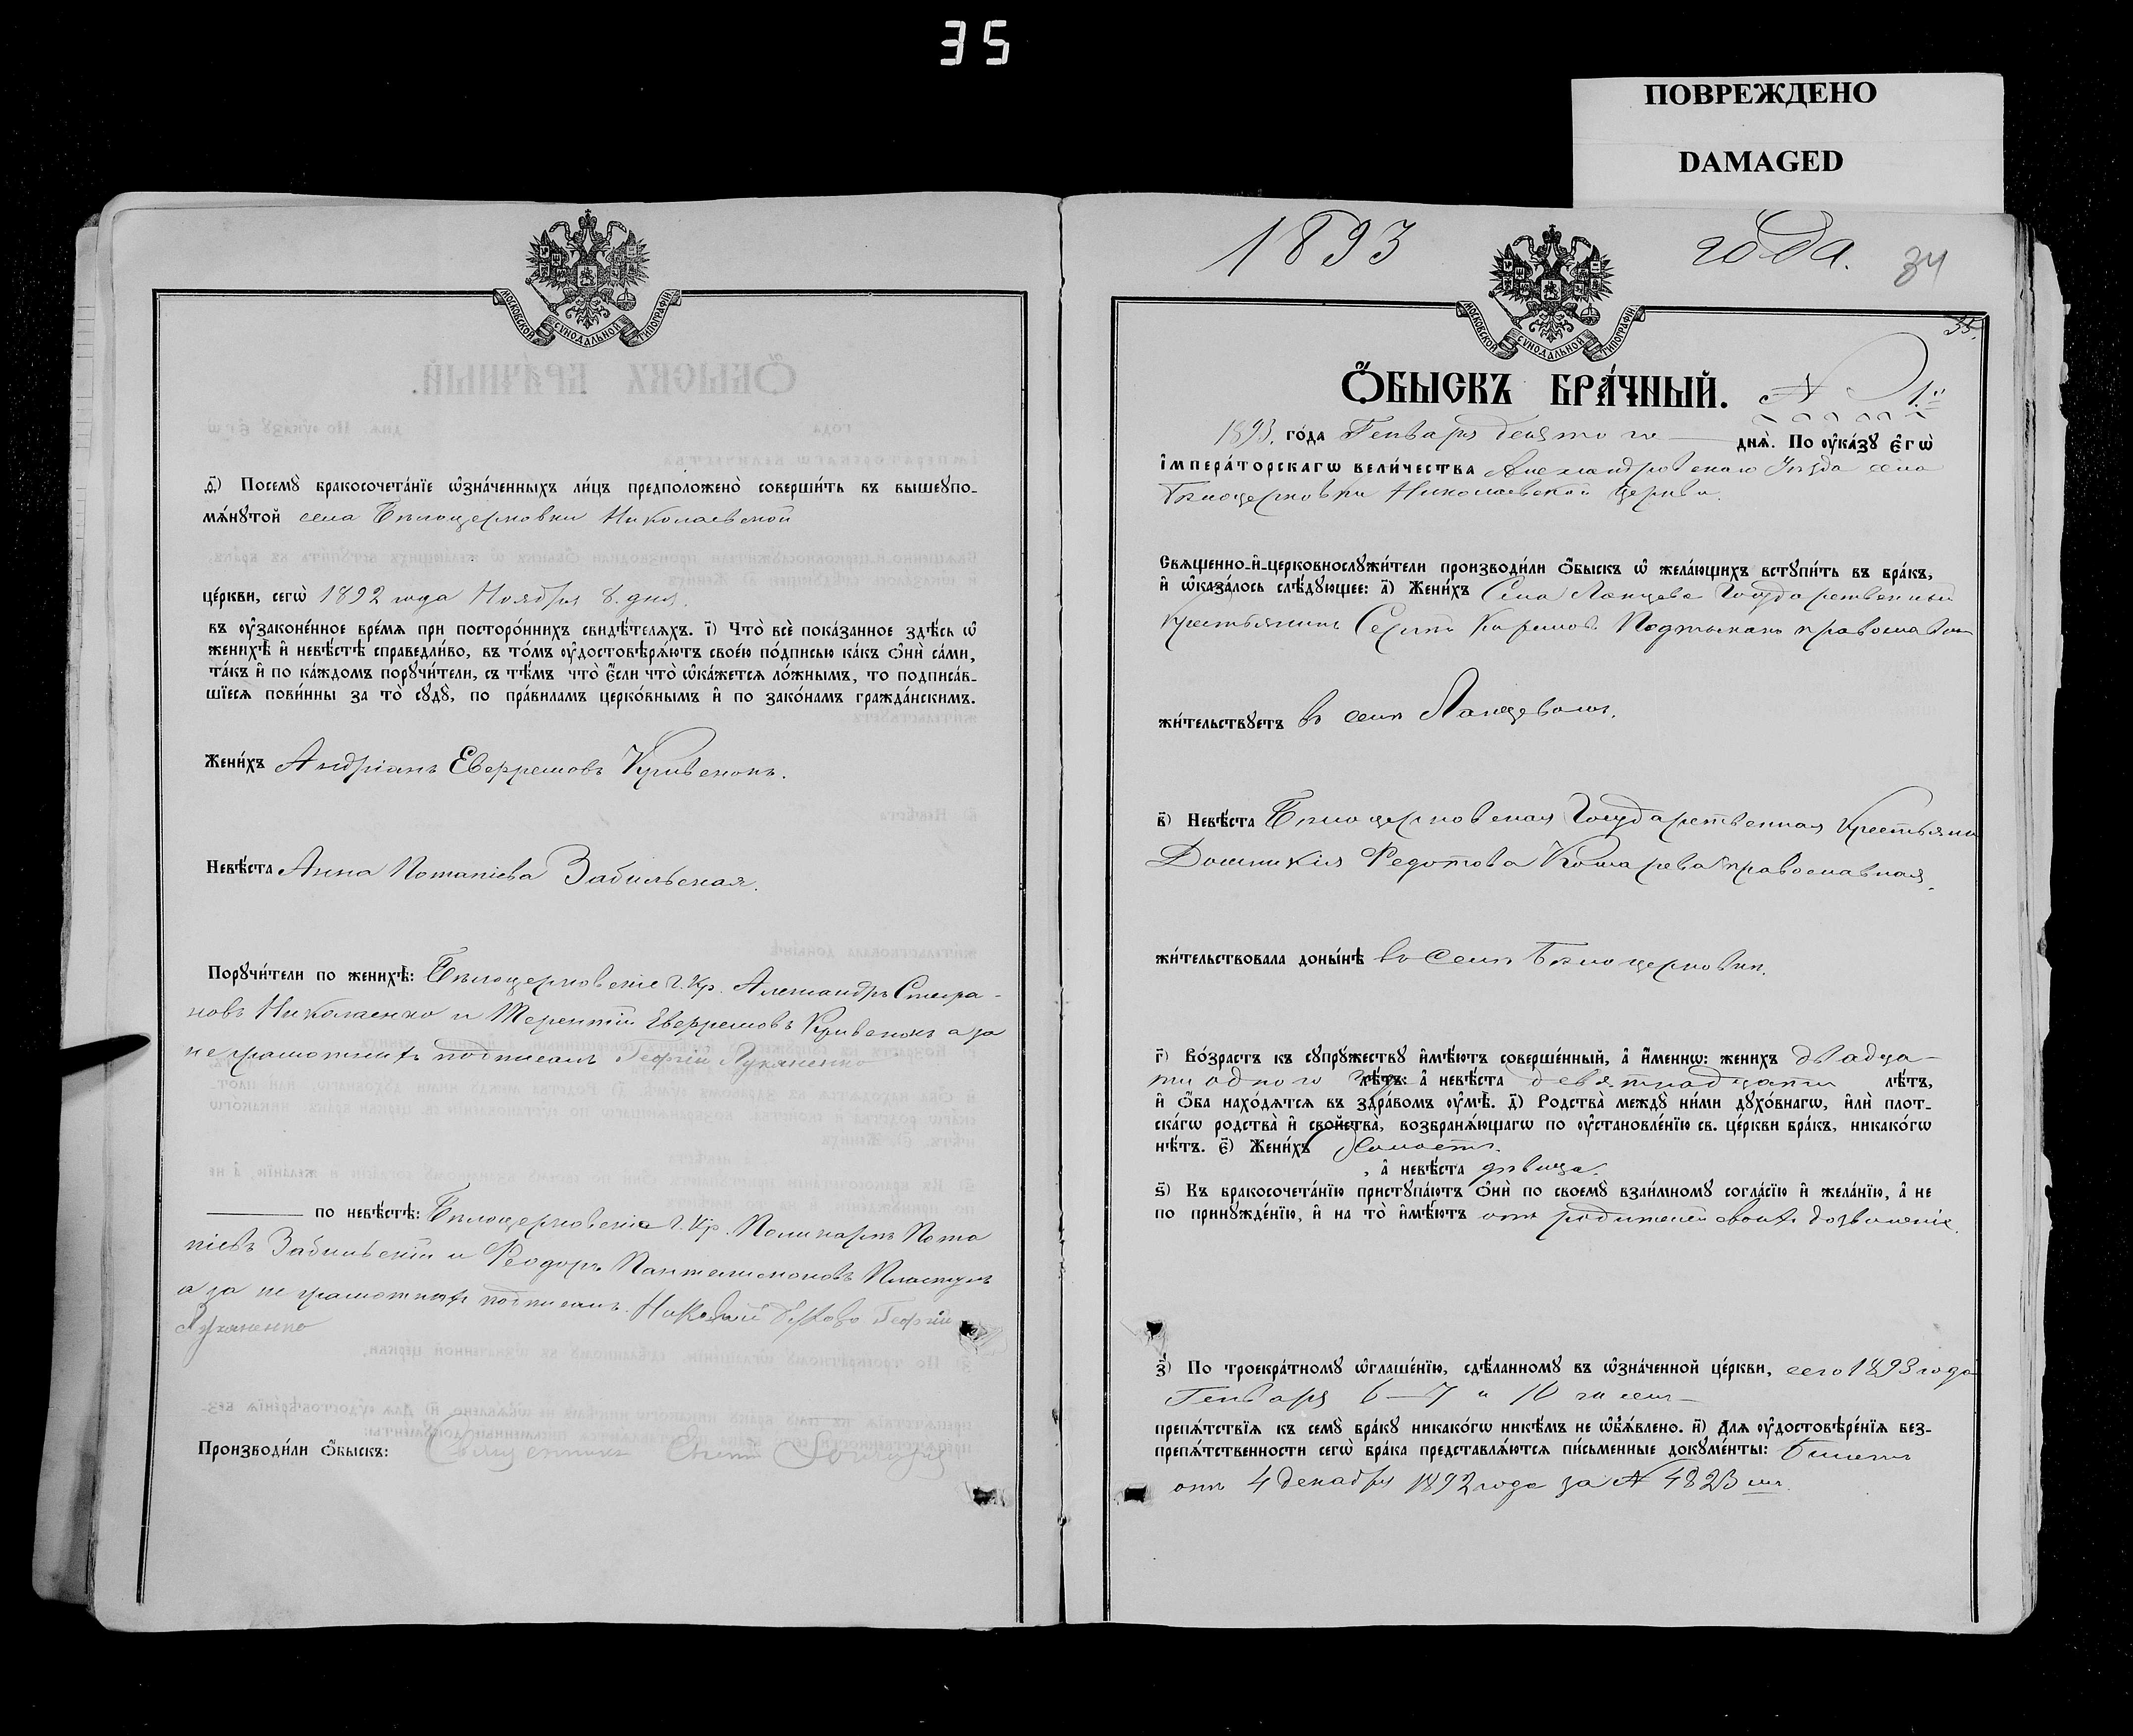 35
ПОВРЕЖДЕНО
DAMAGED
МОСКОВСКОЙ СѴНОДАЛЬНОЙ ТИПОГРАФІИ
ѳ҃) Посемꙋ̀ бракосочета́нїе ѡ҆зна́ченныхъ ли́цъ предположено̀ соверши́ть въ вышеꙋпо-
мѧ́нꙋтой села Бѣлоцерковки Николаевской
це́ркви, сегѡ̀ 1892 года Ноября 8. дня.
въ ᲂу҆законе́нное вре́мѧ при посторо́ннихъ свидѣ́телѧхъ. і҃) Что̀ всѐ пока́занное здѣ́сь ѡ҆
женихѣ̀ и҆ невѣ́стѣ справедли́во, въ то́мъ ᲂу҆достовѣрѧ́ютъ свое́ю по́дписью ка́къ ѻ҆нѝ са́ми,
та́къ и҆ по ка́ждомъ порꙋчи́тели, съ тѣ́мъ что̀ є҆́сли что̀ ѡ҆ка́жетсѧ ло́жнымъ, то подписа́в-
шїесѧ пови́нны за то̀ сꙋдꙋ̀, по пра́виламъ церко́внымъ и҆ по зако́намъ гражда́нскимъ.
Жени́хъ Андріанъ Евфремовъ Кривенокъ.
Невѣ́ста Анна Потапіева Забильская.
Порꙋчи́тели по женихѣ̀: Бѣлоцерковскіе Г. Кр. Александръ Стефа-
новъ Николаенко и Терентій Евфремовъ Кривенокъ а за
неграмотныхъ подписалъ Георгій Лукяненко
по невѣ́стѣ: Бѣлоцерковскіе Г. Кр. Поликарпъ Пота
піевъ Забильскій и Феодоръ Пантелимоновъ Пластунъ
а за неграмотныхъ подписалъ. Георгій
Лукяненко
Производи́ли ѻ҆́быскъ: Священникъ
1893 года. 34
МОСКОВСКОЙ СѴНОДАЛЬНОЙ ТИПОГРАФІИ
35.
Ѻ҆́БЫСКЪ БРА́ЧНЫЙ. № 1.й
1893. го́да Генваря десятого днѧ̀. По ᲂу҆ка́зꙋ є҆гѡ̀
і҆мпера́торскагѡ вели́чества Александровскаго Уѣзда села
Бѣлоцерковки Николаевской Церкви.
Свѧщенно-и҆-церковнослꙋжи́тели производи́ли ѻ҆́быскъ ѡ҆ жела́ющихъ встꙋпи́ть въ бра́къ,
и҆ ѡ҆каза́лось слѣ́дꙋющее: а҃) Жени́хъ Села Ланцева Государственный
крестьянинъ православн
жи́тельствꙋетъ въ селѣ Ланцевомъ.
в҃) Невѣ́ста Бѣлоцерковская Государственная Крестьянка
Домникія Федотова Комарева православная.
жи́тельствовала доны́нѣ въ Селѣ Бѣлоцерковки.
г҃) Во́зрастъ къ сꙋпрꙋ́жествꙋ и҆мѣ́ютъ соверше́нный, а҆ и҆́менно: жени́хъ двадца-
ти одного лѣ́тъ: а҆ невѣ́ста девятнадцати лѣ́тъ,
и҆ ѻ҆́ба нахо́дѧтсѧ въ здра́вомъ ᲂу҆мѣ̀. д҃) Родства̀ междꙋ ни́ми дꙋхо́внагѡ, и҆лѝ плот-
ска́гѡ родства̀ и҆ сво́йства̀, возбранѧ́ющагѡ по ᲂу҆становле́нїю св. це́ркви бра́къ, никако́гѡ
нѣ́тъ. є҃) Жени́хъ холостъ.
, а҆ невѣ́ста дѣвица.
ѕ҃) Къ бракосочета́нїю пристꙋпа́ютъ ѻ҆нѝ по своемꙋ̀ взаи́мномꙋ согла́сїю и҆ жела́нїю, а҆ не
по принꙋжде́нїю, и҆ на то̀ и҆мѣ́ютъ отъ родителей своихъ дозволеніе.
з҃) По троекра́тномꙋ ѡ҆глаше́нїю, сдѣ́ланномꙋ въ ѡ҆зна́ченной це́ркви, сего 1893 года
Генваря 6 — 7 и 10 чиселъ
препѧ́тствїѧ къ семꙋ̀ бра́кꙋ никако́гѡ никѣ́мъ не ѡ҆б̾ѧ́влено. и҃) Для ᲂу҆достовѣре́нїѧ без-
препѧ́тственности сегѡ̀ бра́ка представлѧ́ютсѧ пи́сьменные докꙋме́нты: Билетъ
отъ 4 декабря 1892 года за № 4823 мъ.